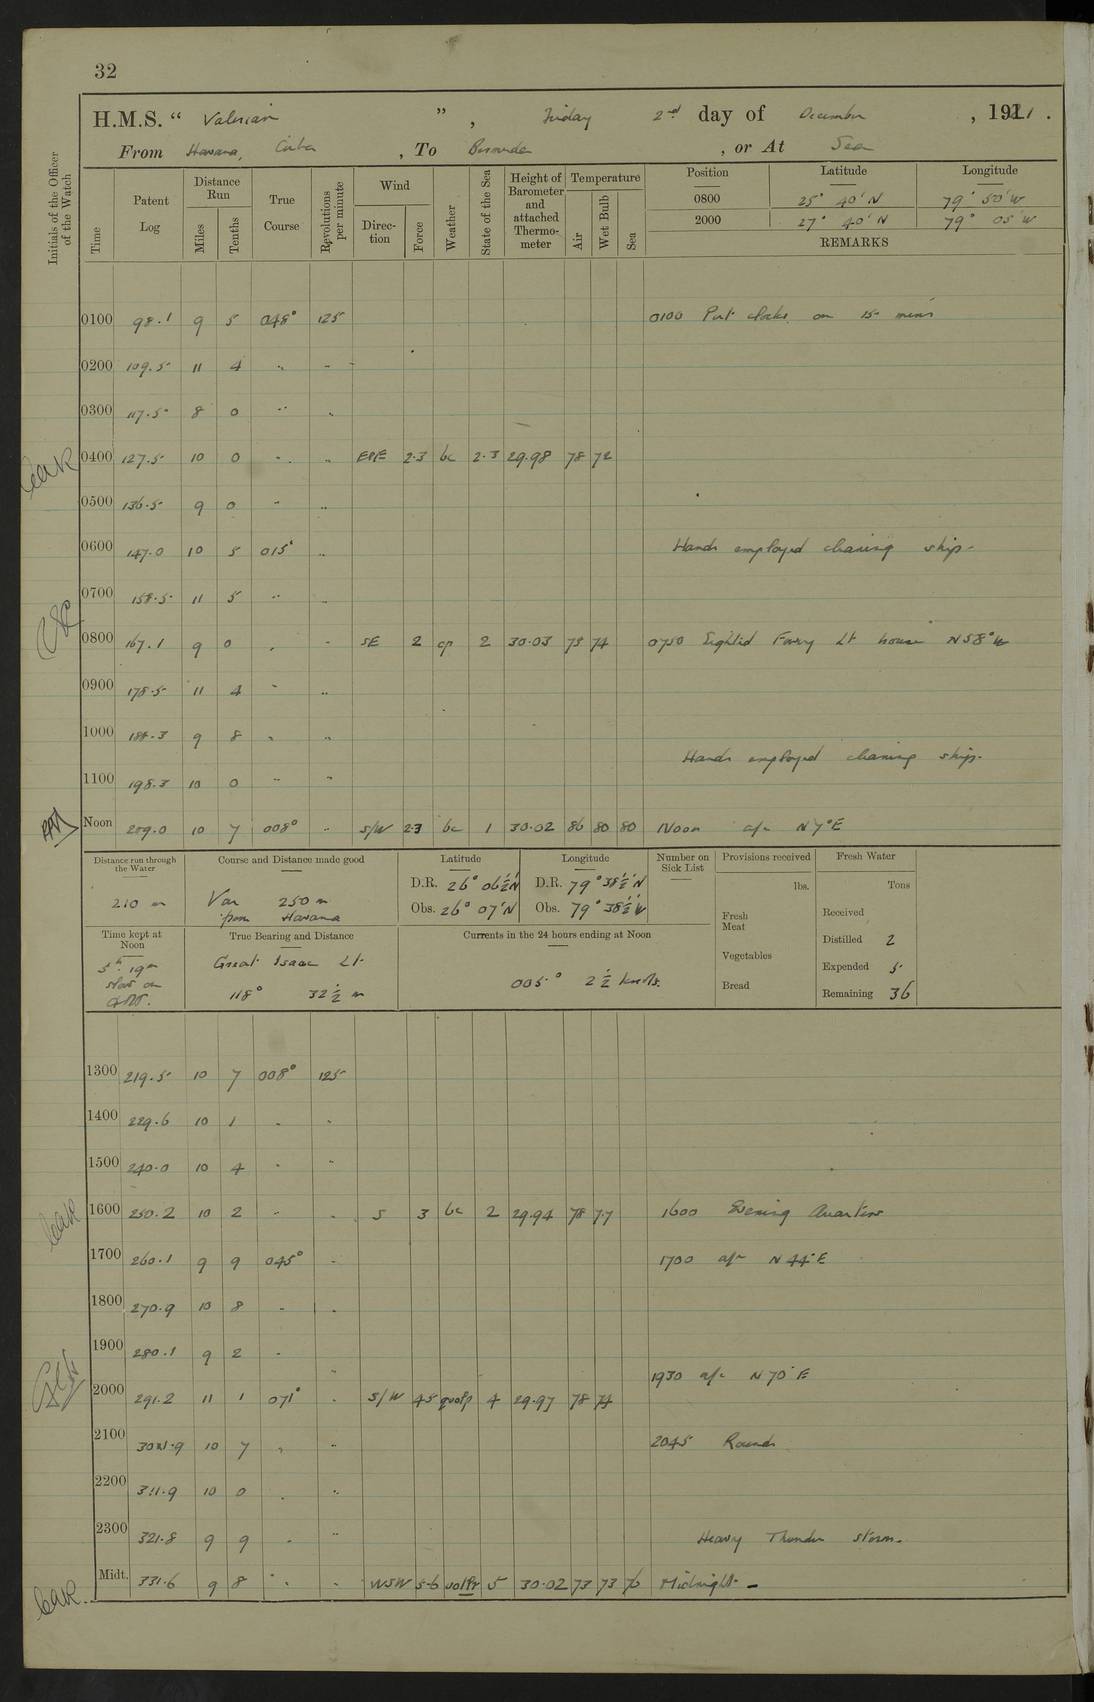 32
H.M.S. “ Valerian ”, Friday 2nd day of December, 1921.
From Havana, Cuba, To Bermuda, or At Sea
Initials of the Officer of the Watch
Time
Patent Log
Distance Run
Miles
Tenths
True Course
Revolutions per minute
Wind
Direction
Force
Weather
State of the Sea
Height of Barometer and attached Thermometer
Temperature
Air
Wet Bulb
Sea
Position Latitude Longitude
0800 25° 40' N 79° 50' W
2000 27° 40' N 79° 05' W
REMARKS
0100 98.1 9 5 048° 125 0100 Put clocks on 15 mins
0200 109.5 11 4 " "
0300 117.5 8 0 " "
0400 127.5 10 0 " " 2.3 bc 2.3 29.98 78 72
0500 136.5 9 0 " "
0600 147.0 10 5 015° " Hands employed cleaning ship.
0700 158.5 11 5 " "
0800 167.1 9 0 " " SE 2 cp 2 30.03 75 74 0750 Sighted Fowey Lt house N58°W
0900 178.5 11 4 " "
1000 188.3 9 8 " "
Hands employed cleaning ship.
1100 198.3 10 0 " "
Noon 209.0 10 7 008° " S/W 2.3 bc 1 30.02 86 80 80 Noon a/c N7°E
Distance run through the Water
210 m
Course and Distance made good
Var 250 m
from Havana
Latitude
D.R. 26° 06½'N
Obs. 26° 07' N
Longitude
D.R. 79° 38½' N
Obs. 79° 38½' W
Number on Sick List
Provisions received
lbs.
Fresh Meat
Vegetables
Bread
Fresh Water
Tons
Received
Distilled 2
Expended 5
Remaining 36
Time kept at Noon
5h 19m
slow on
GMT.
True Bearing and Distance
Great Isaac Lt.
118° 32½ m
Currents in the 24 hours ending at Noon
005° 2½ knots.
1300 219.5 10 7 008° 125
1400 229.6 10 1 " "
1500 240.0 10 4 " "
1600 250.2 10 2 " " S 3 bc 2 29.94 78 77 1600 Evening Quarters
1700 260.1 9 9 045° " 1700 a/c N 44°E
1800 270.9 10 8 " "
1900 280.1 9 2 " "
1930 a/c N 70° E
2000 291.2 11 1 071° " S/W 4.5 4 29.97 78 74
2100 301.9 10 7 " " 2045 Rounds
2200 311.9 10 0 " "
2300 321.8 9 9 " " Heavy Thunder storm.
Midt. 331.6 9 8 " " WSW 5-6 5 30.02 73 73 76 Midnight. –